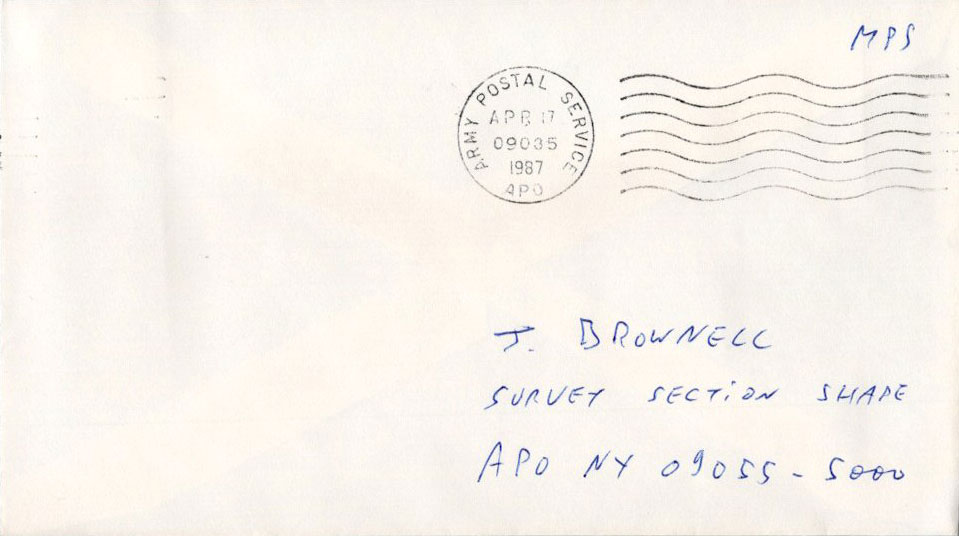 MPS
ARMY POSTAL SERVICE
APR 17
09035
1987
APO
J. BROWNELL
SURVEY SECTION SHAPE
APO NY 09055-5000